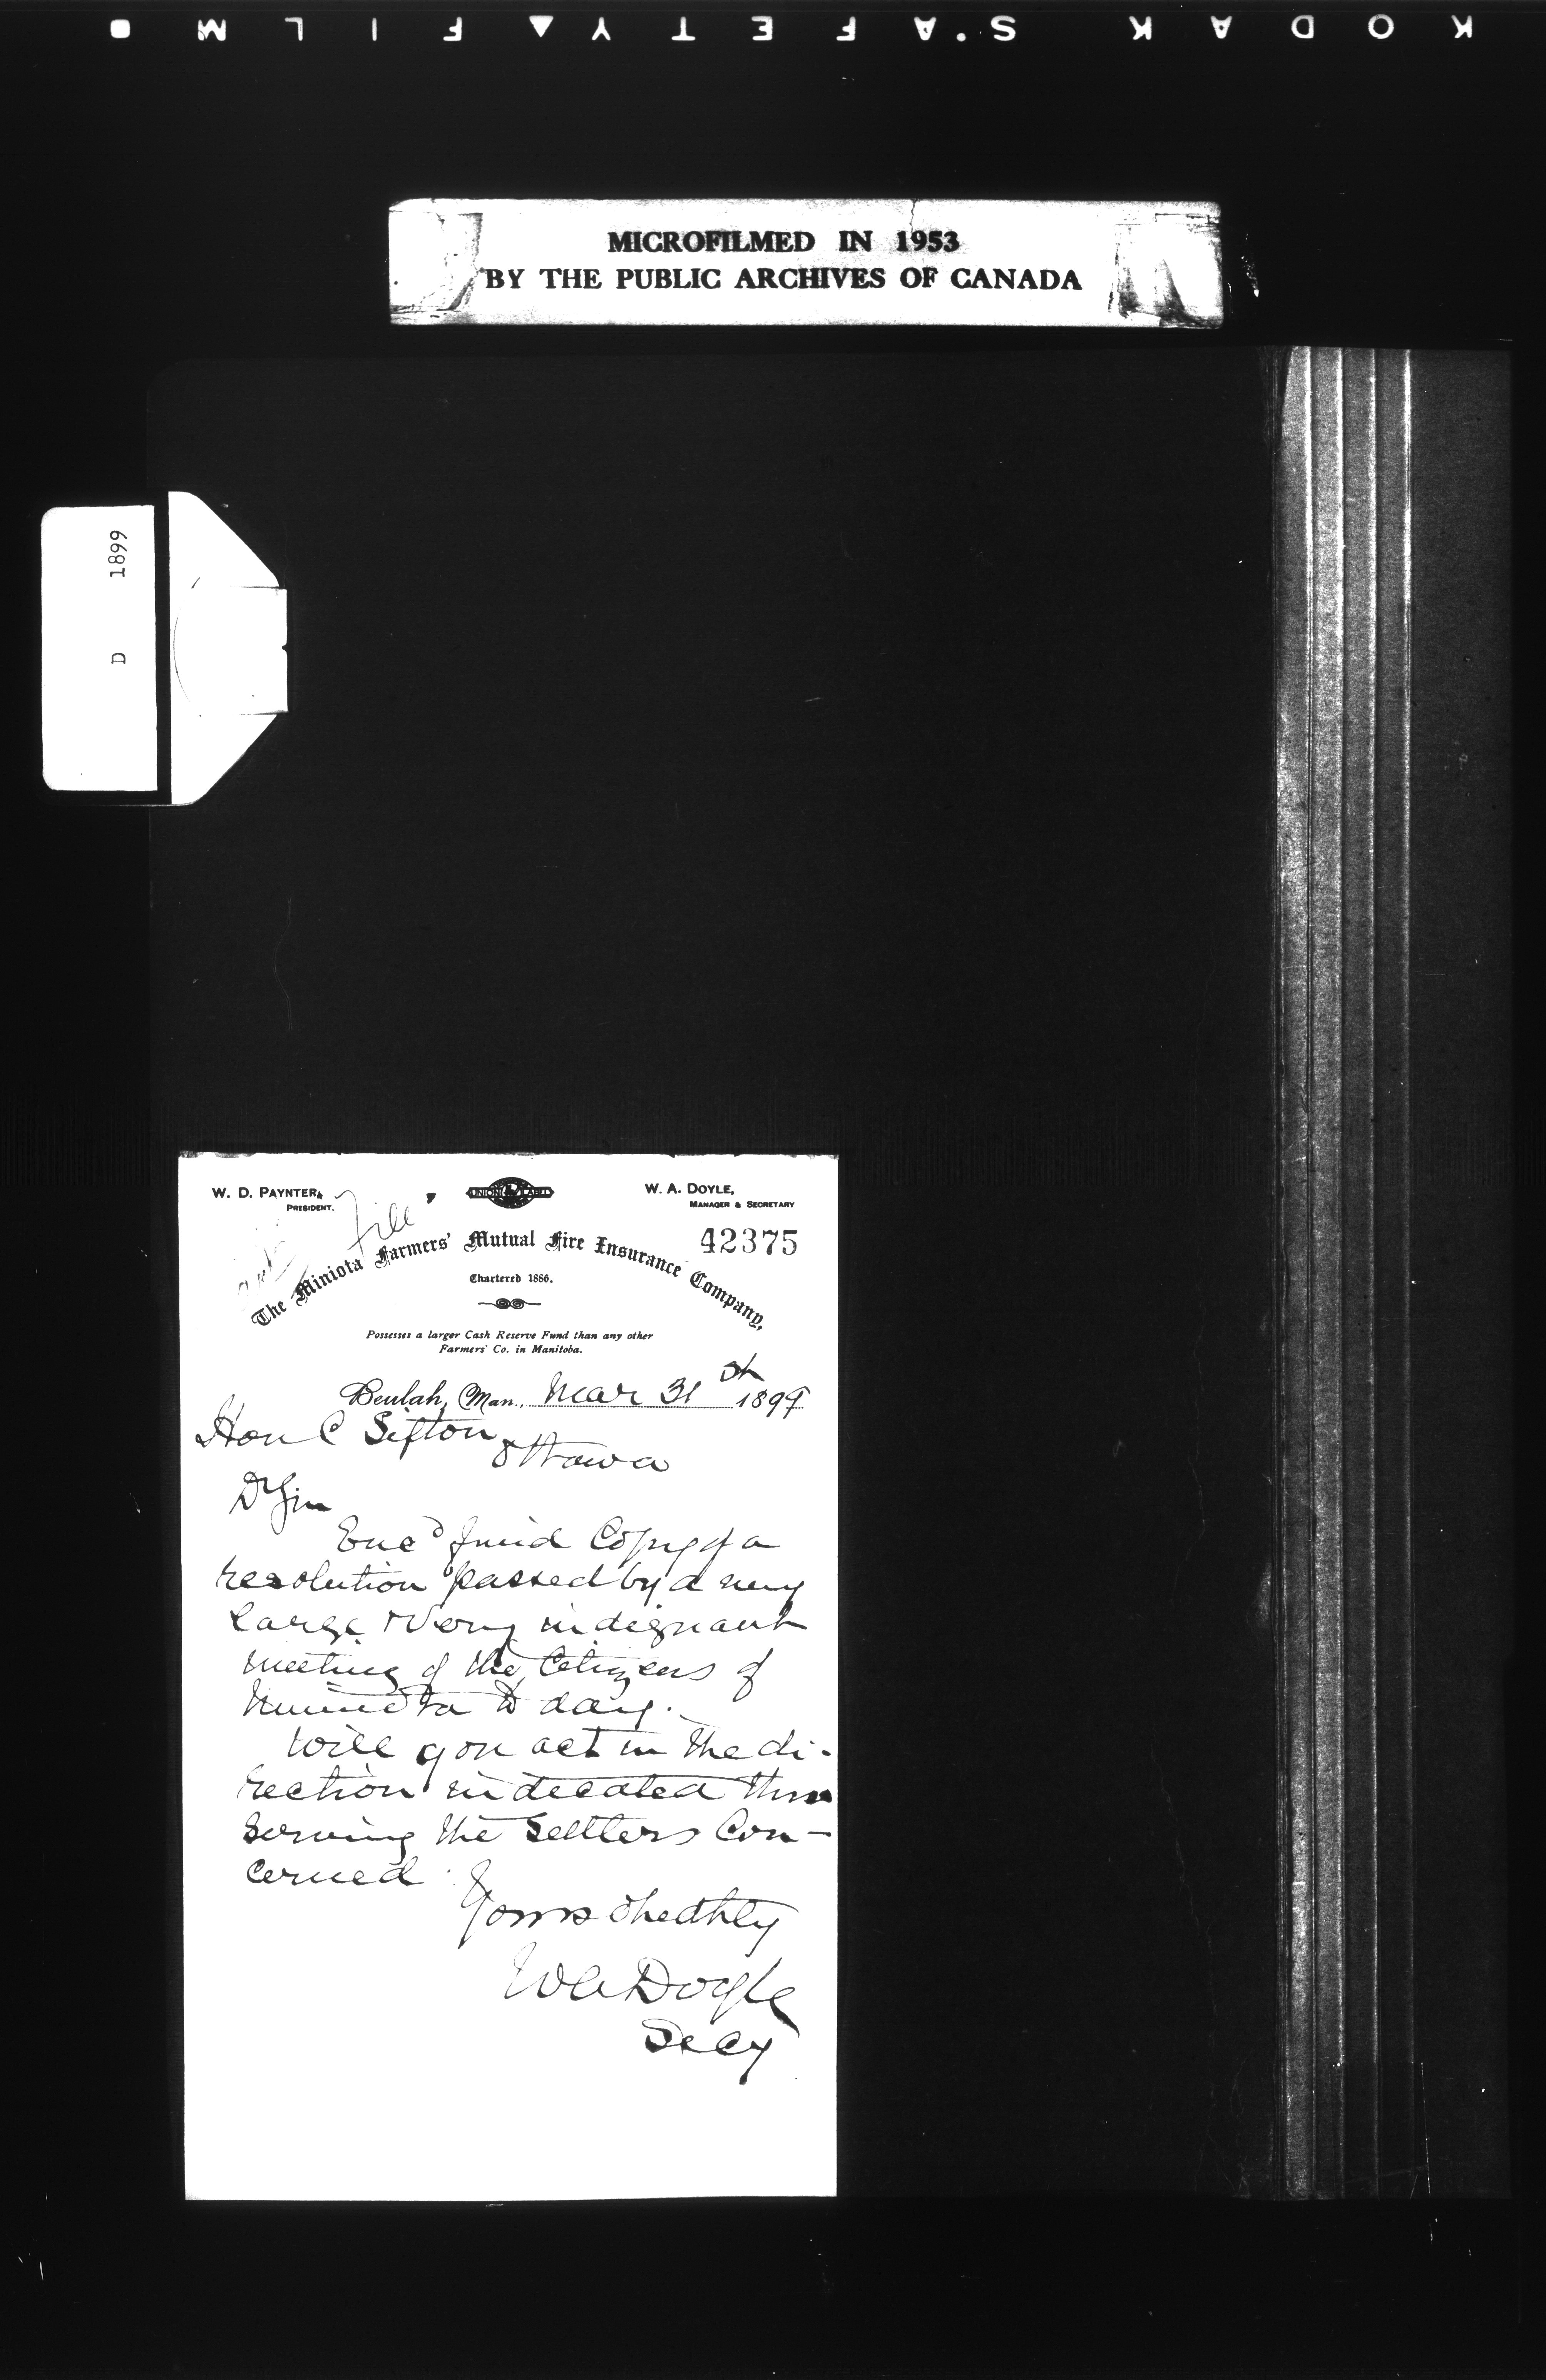 KODAK SAFETY FILM
MICROFILMED IN 1953
BY THE PUBLIC ARCHIVES OF CANADA
D 1899
W. D. PAYNTER,
PRESIDENT.
UNION LABEL
W. A. DOYLE,
MANAGER & SECRETARY
File
42375
The Miniota Farmers' Mutual Fire Insurance Company,
Chartered 1886.
Possesses a larger Cash Reserve Fund than any other
Farmers' Co. in Manitoba.
Beulah, Man., Mar 31st 1899
Hon C Sifton
Ottawa
Dr Sir
Encd find Copy of a
resolution passed by a very
large & very indignant
meeting of the Citizens of
Miniota to day.
Will you act in the di-
rection indicated thus
serving the settlers Con-
cerned
Yours
WADoyle
Secy